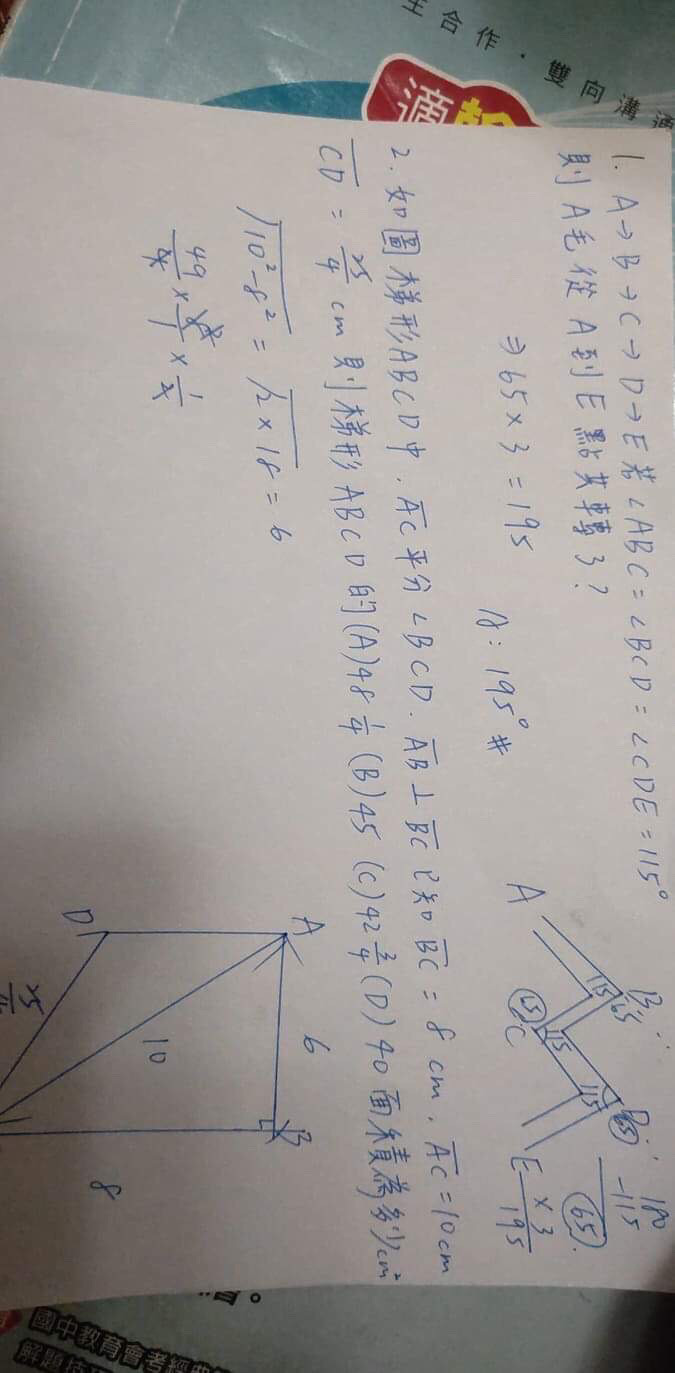 主合作.雙向溝通
適
1. A→B→C→D→E 若∠ABC=∠BCD=∠CDE=115°
則 A毛從 A到E點共轉了?
⇒65×3=195
A:195°#
A
B
115
65
65
C
115
115
D
65
E
180
-115
65
×3
195
2. 如圖梯形ABCD中.AC平分∠BCD.AB⊥BC已知BC=8cm.AC=10cm
CD=25/4cm 則梯形ABCD的(A)48 1/4 (B)45 (C)42 3/4 (D)40面積為多少cm²
√10²-8² = √2×18 = 6
49/4 × 8/1 × 1/2
A
6
B
D
10
8
25/4
國中教育會考經典
解題技